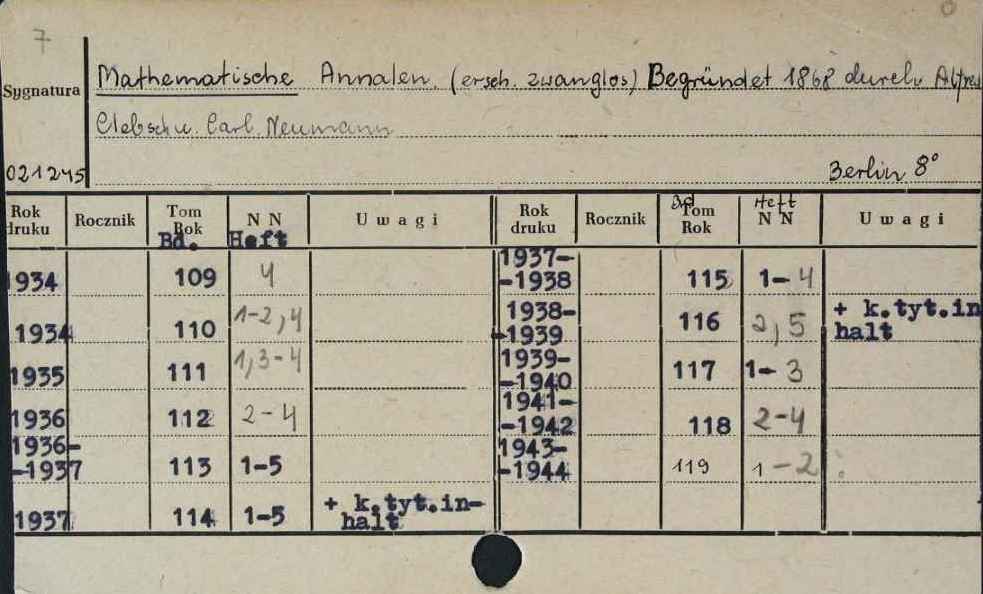 7
Sygnatura
Mathematische Annalen. (ersch. zwanglos) Begründet 1868 durch Alfred
Clebsch u. Carl Neumann
021245 Berlin 8°
Rok druku Rocznik Tom Rok N N Uwagi Rok druku Rocznik Bd Tom Rok Heft N N Uwagi
Bd. Heft
1934 109 4 1937-
-1938 115 1-4
1934 110 1-2,4 1938-
-1939 116 2,5 + k.tyt.in
halt
1935 111 1,3-4 1939-
-1940 117 1-3
1936 112 2-4 1941-
-1942 118 2-4
1936-
-1937 113 1-5 1943-
-1944 119 1-2
1937 114 1-5 + k.tyt.in-
halt